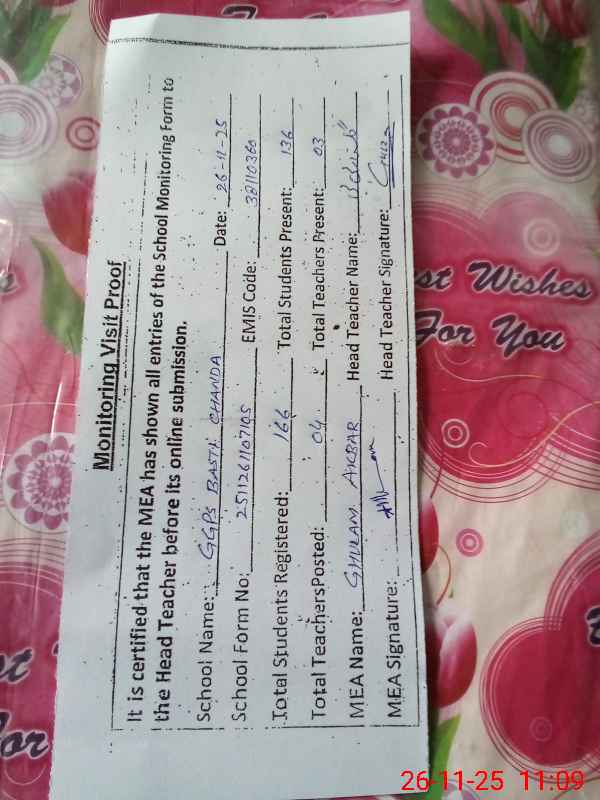 Monitoring Visit Proof
It is certified that the MEA has shown all entries of the School Monitoring Form to
the Head Teacher before its online submission.
School Name: GGPS BASTI CHANDA Date: 26-11-25
School Form No: 2511261107105 EMIS Code: 38110360
Total Students Registered: 166 Total Students Present: 136
Total Teachers Posted: 04 Total Teachers Present: 03
MEA Name: GHULAM AKBAR Head Teacher Name:
MEA Signature: Head Teacher Signature:
st Wishes
For You
st
or
26-11-25 11:09